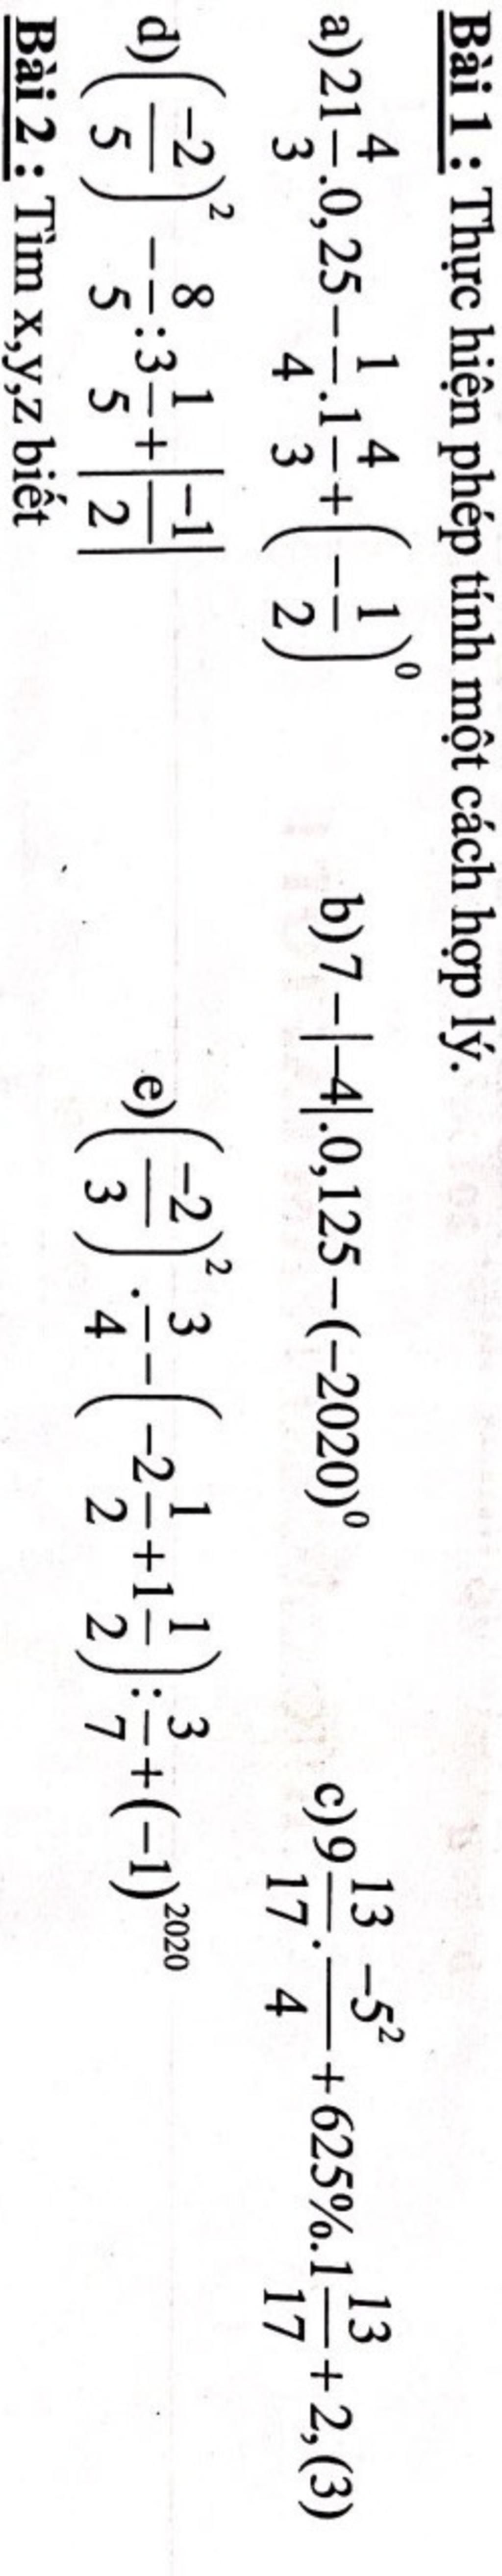 Bài 1 : Thực hiện phép tính một cách hợp lý.
a) 21\frac{4}{3}.0,25-\frac{1}{4}.1\frac{4}{3}+\left(-\frac{1}{2}\right)^0 b) 7-|-4|.0,125-(-2020)^0 c) 9\frac{13}{17}.\frac{-5^2}{4}+625%.1\frac{13}{17}+2,(3)
d) \left(\frac{-2}{5}\right)^2-\frac{8}{5}:3\frac{1}{5}+\left|\frac{-1}{2}\right| e) \left(\frac{-2}{3}\right)^2.\frac{3}{4}-\left(-2\frac{1}{2}+1\frac{1}{2}\right):\frac{3}{7}+(-1)^{2020}
Bài 2 : Tìm x,y,z biết